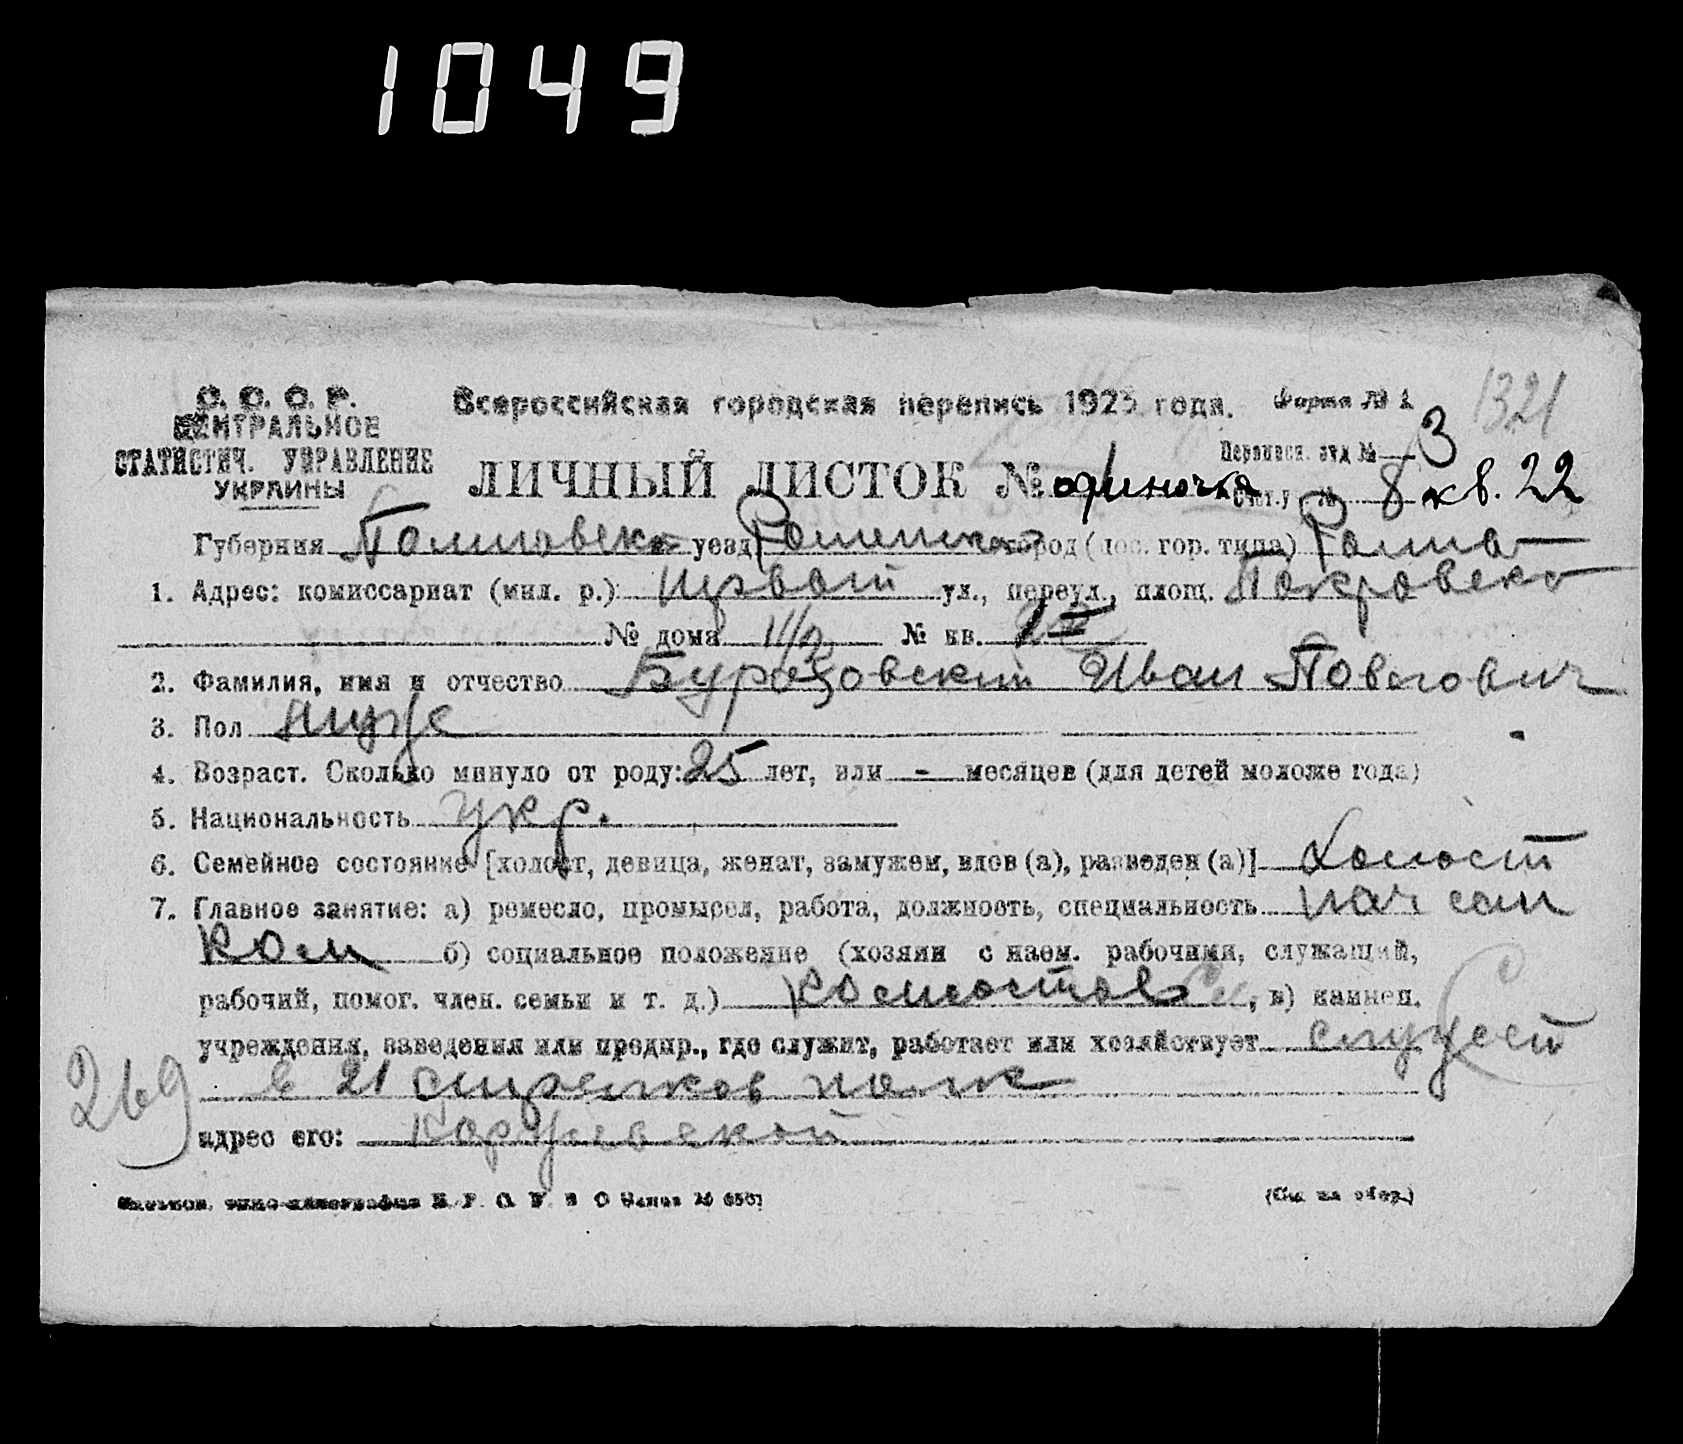 1049
С. С. С. Р.
ЦЕНТРАЛЬНОЕ
СТАТИСТИЧ. УПРАВЛЕНИЕ
УКРАИНЫ
Всероссийская городская перепись 1923 года.
Форма № 1
1321
ЛИЧНЫЙ ЛИСТОК № одиночка
Переписн. отд № 3
Счет. у № 8 кв. 22
Губерния уезд город (пос. гор. типа)
1. Адрес: комиссариат (мил. р.) ул., переул., площ. Покровска
№ дома 11/2 № кв.
2. Фамилия, имя и отчество Иван Повлович
3. Пол муж
4. Возраст. Сколько минуло от роду: 25 лет, или - месяцев (для детей моложе года)
5. Национальность укр.
6. Семейное состояние [холост, девица, женат, замужем, вдов (а), разведен (а)] Холост
7. Главное занятие: а) ремесло, промысел, работа, должность, специальность нач сан
ком б) социальное положение (хозяин с наем. рабочими, служащий,
рабочий, помог. член. семьи и т. д.) комсостав, в) наимен.
учреждения, заведения или предпр., где служит, работает или хозяйствует служет
в 21 стрелков полк
269
адрес его:
(См на обор.)